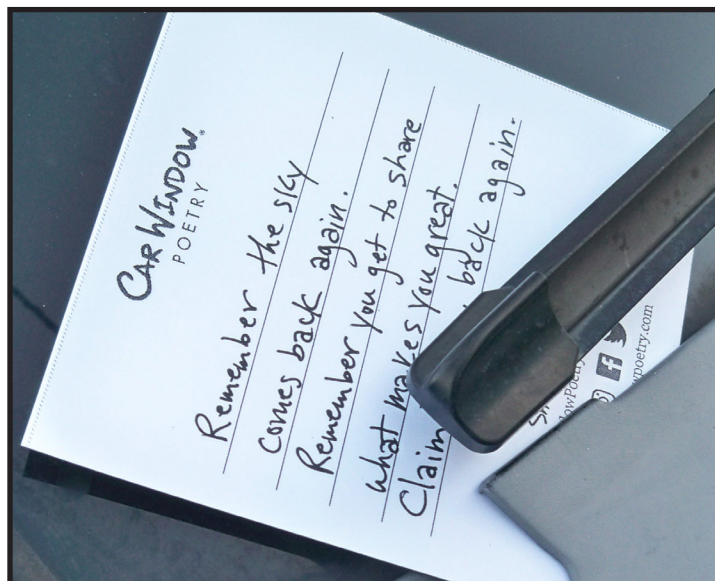 CAR WINDOW
POETRY
Remember the sky
comes back again.
Remember you get to share
what makes you great.
Claim back again.
wpoetry.com